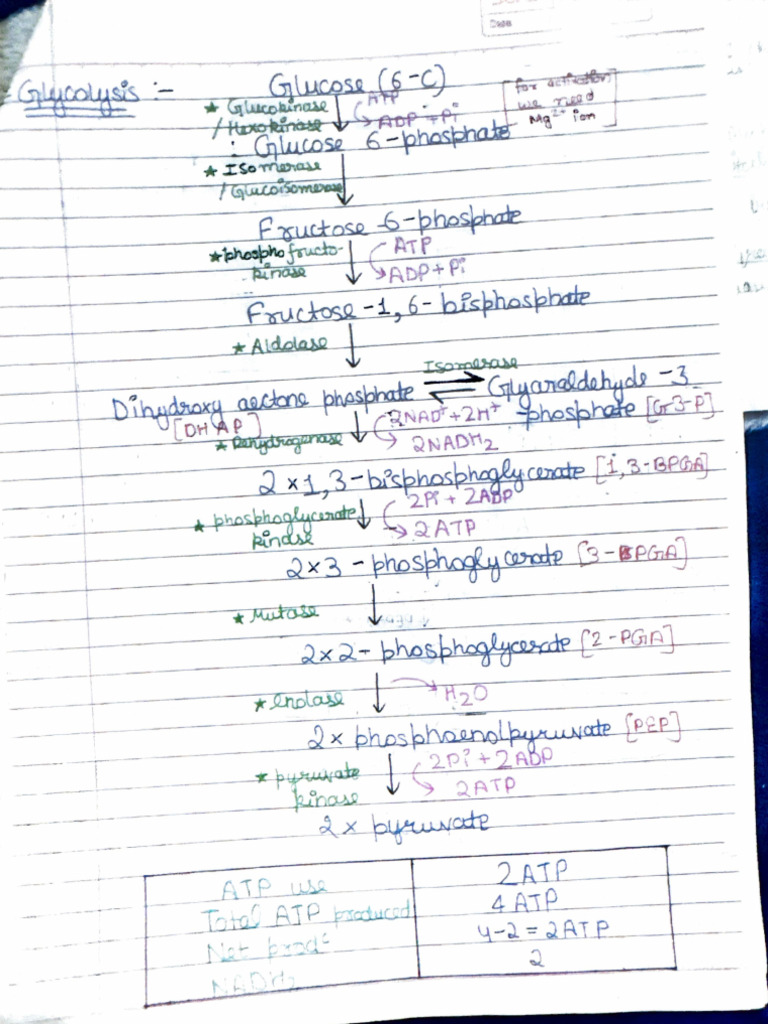 Date
Glycolysis :-
Glucose (6-C)
★ Glucokinase
/ Hexokinase
ATP
ADP + Pi
[for activation
we need
Mg²⁺ ion]
: Glucose 6-phosphate
★ Isomerase
/ Glucoisomerase
Fructose -6-phosphate
★ phosphofructo-
kinase
ATP
ADP + Pi
Fructose -1,6-bisphosphate
★ Aldolase
Isomerase
Dihydroxy aectone phosphate
[DHAP]
Glyaraldehyde -3
-phosphate [G3-P]
★ Dehydrogenase
2NAD⁺ + 2H⁺
2NADH₂
2×1,3-bisphosphoglycerate [1,3-BPGA]
★ phosphoglycerate
kinase
2Pi + 2ADP
2ATP
2×3 -phosphoglycerate [3-PGA]
★ Mutase
2×2- phosphoglycerate [2-PGA]
★ enolase
H₂O
2× phosphoenolpyruvate [PEP]
★ pyruvate
kinase
2Pi + 2ADP
2ATP
2 × pyruvate
ATP use 2ATP
Total ATP produced 4 ATP
Net prodᵗ 4-2 = 2ATP
NADH₂ 2